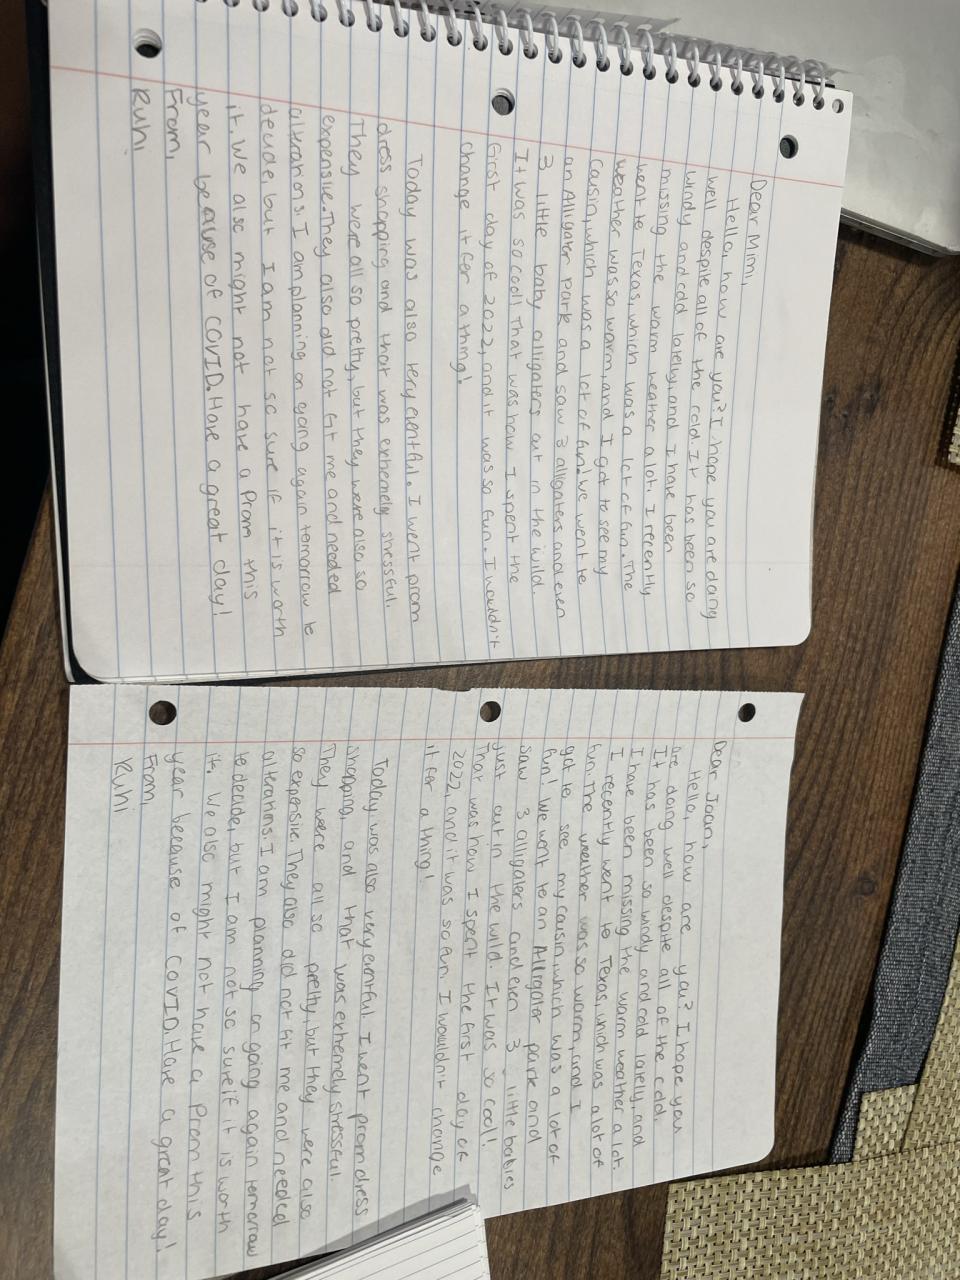 Dear Mimi,
Hello, how are you? I hope you are doing
well despite all of the cold. It has been so
windy and cold lately, and I have been
missing the warm weather a lot. I recently
went to Texas, which was a lot of fun. The
weather was so warm, and I got to see my
cousin, which was a lot of fun! We went to
an Alligator Park and saw 3 alligators and even
3 little baby alligators out in the wild.
It was so cool! That was how I spent the
first day of 2022, and it was so fun. I wouldn't
change it for a thing!
Today was also very eventful. I went prom
dress shopping and that was extremely stressful.
They were all so pretty, but they were also so
expensive. They also did not fit me and needed
alterations. I am planning on going again tomorrow to
decide, but I am not so sure if it is worth
it. We also might not have a Prom this
year because of COVID. Have a great day!
From,
Ruhi
Dear Joan,
Hello, how are you? I hope you
are doing well despite all of the cold.
It has been so windy and cold lately, and
I have been missing the warm weather a lot.
I recently went to Texas, which was a lot of
fun. The weather was so warm, and I
got to see my cousin, which was a lot of
fun! We went to an Alligator park and
saw 3 alligators and even 3 little babies
just out in the wild. It was so cool!
That was how I spent the first day of
2022, and it was so fun. I wouldn't change
it for a thing!
Today was also very eventful. I went prom dress
shopping, and that was extremely stressful.
They were all so pretty, but they were also
so expensive. They also did not fit me and needed
alterations. I am planning on going again tomorrow
to decide, but I am not so sure if it is worth
it. We also might not have a Prom this
year because of COVID. Have a great day!
From,
Ruhi